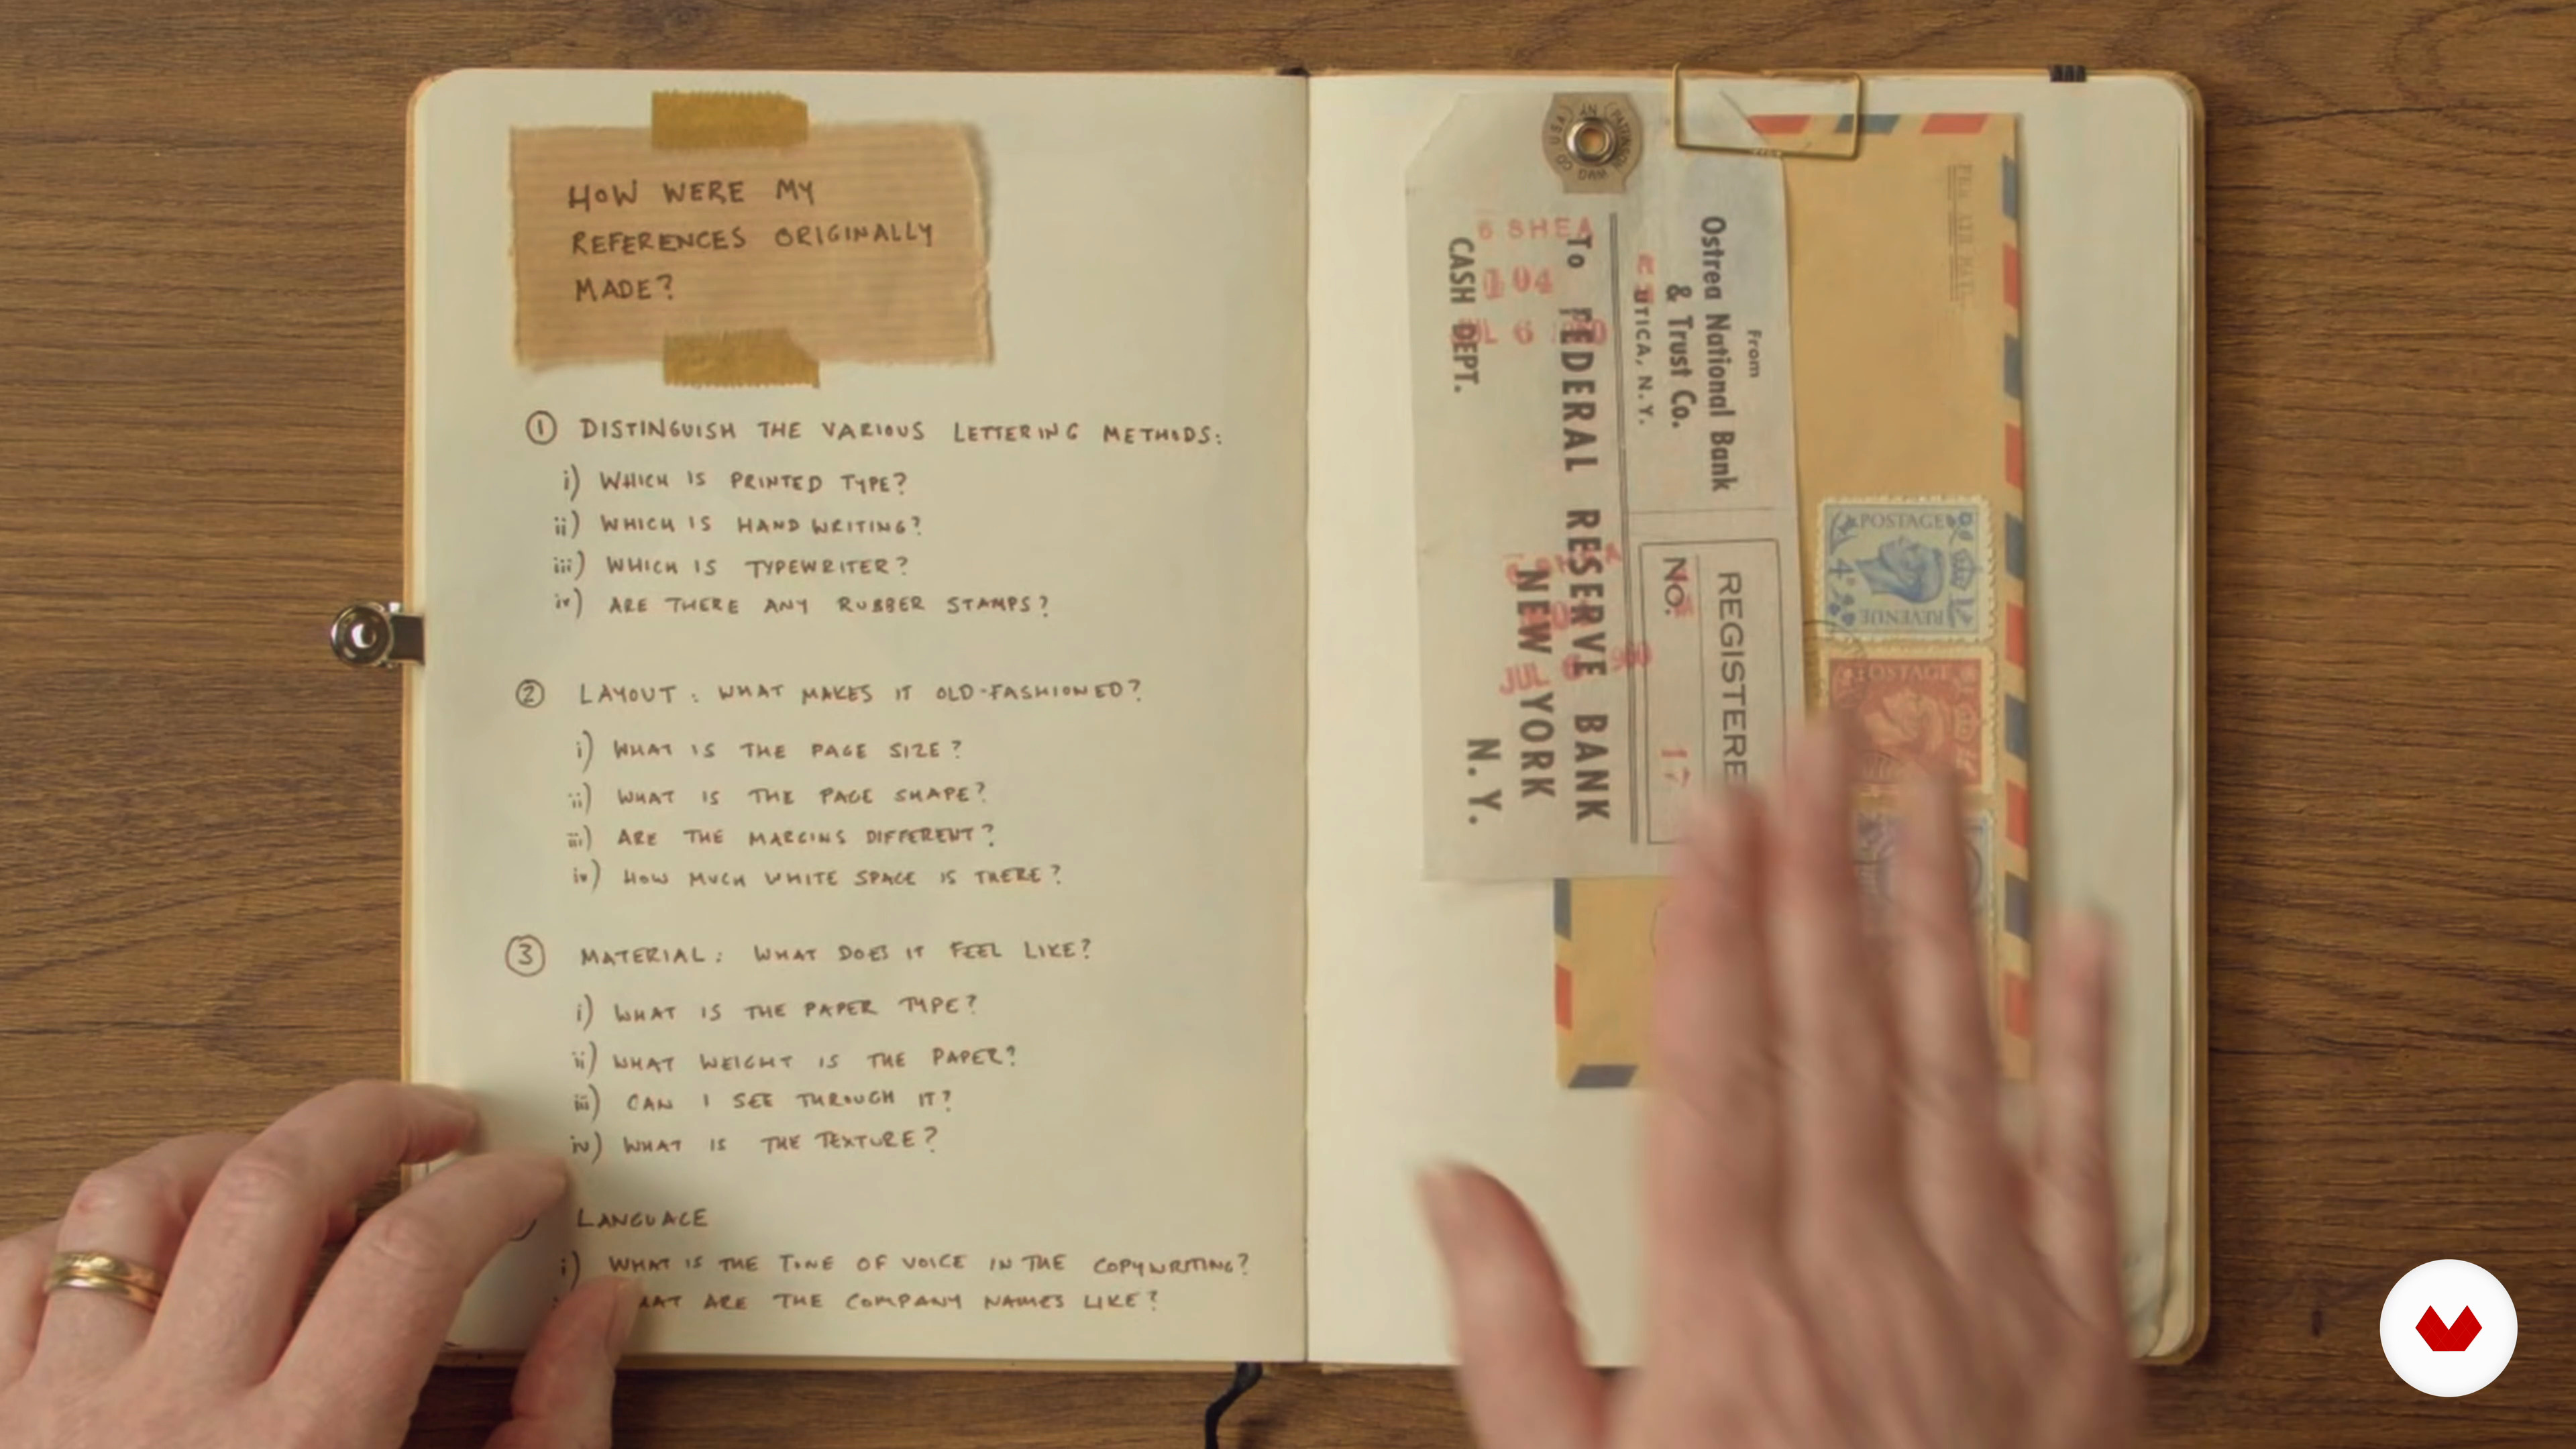 HOW WERE MY
REFERENCES ORIGINALLY
MADE?
① DISTINGUISH THE VARIOUS LETTERING METHODS:
i) WHICH IS PRINTED TYPE?
ii) WHICH IS HANDWRITING?
iii) WHICH IS TYPEWRITER?
iv) ARE THERE ANY RUBBER STAMPS?
② LAYOUT: WHAT MAKES IT OLD-FASHIONED?
i) WHAT IS THE PAGE SIZE?
ii) WHAT IS THE PAGE SHAPE?
iii) ARE THE MARGINS DIFFERENT?
iv) HOW MUCH WHITE SPACE IS THERE?
③ MATERIAL: WHAT DOES IT FEEL LIKE?
i) WHAT IS THE PAPER TYPE?
ii) WHAT WEIGHT IS THE PAPER?
iii) CAN I SEE THROUGH IT?
iv) WHAT IS THE TEXTURE?
LANGUAGE
i) WHAT IS THE TONE OF VOICE IN THE COPYWRITING?
ARE THE COMPANY NAMES LIKE?
From
Ostrea National Bank
& Trust Co.
UTICA, N.Y.
REGISTERE
No. 17
To FEDERAL RESERVE BANK
NEW YORK
N.Y.
CASH DEPT.
6 SHEA
104
JUL 6
POSTAGE
4D
REVENUE
POSTAGE